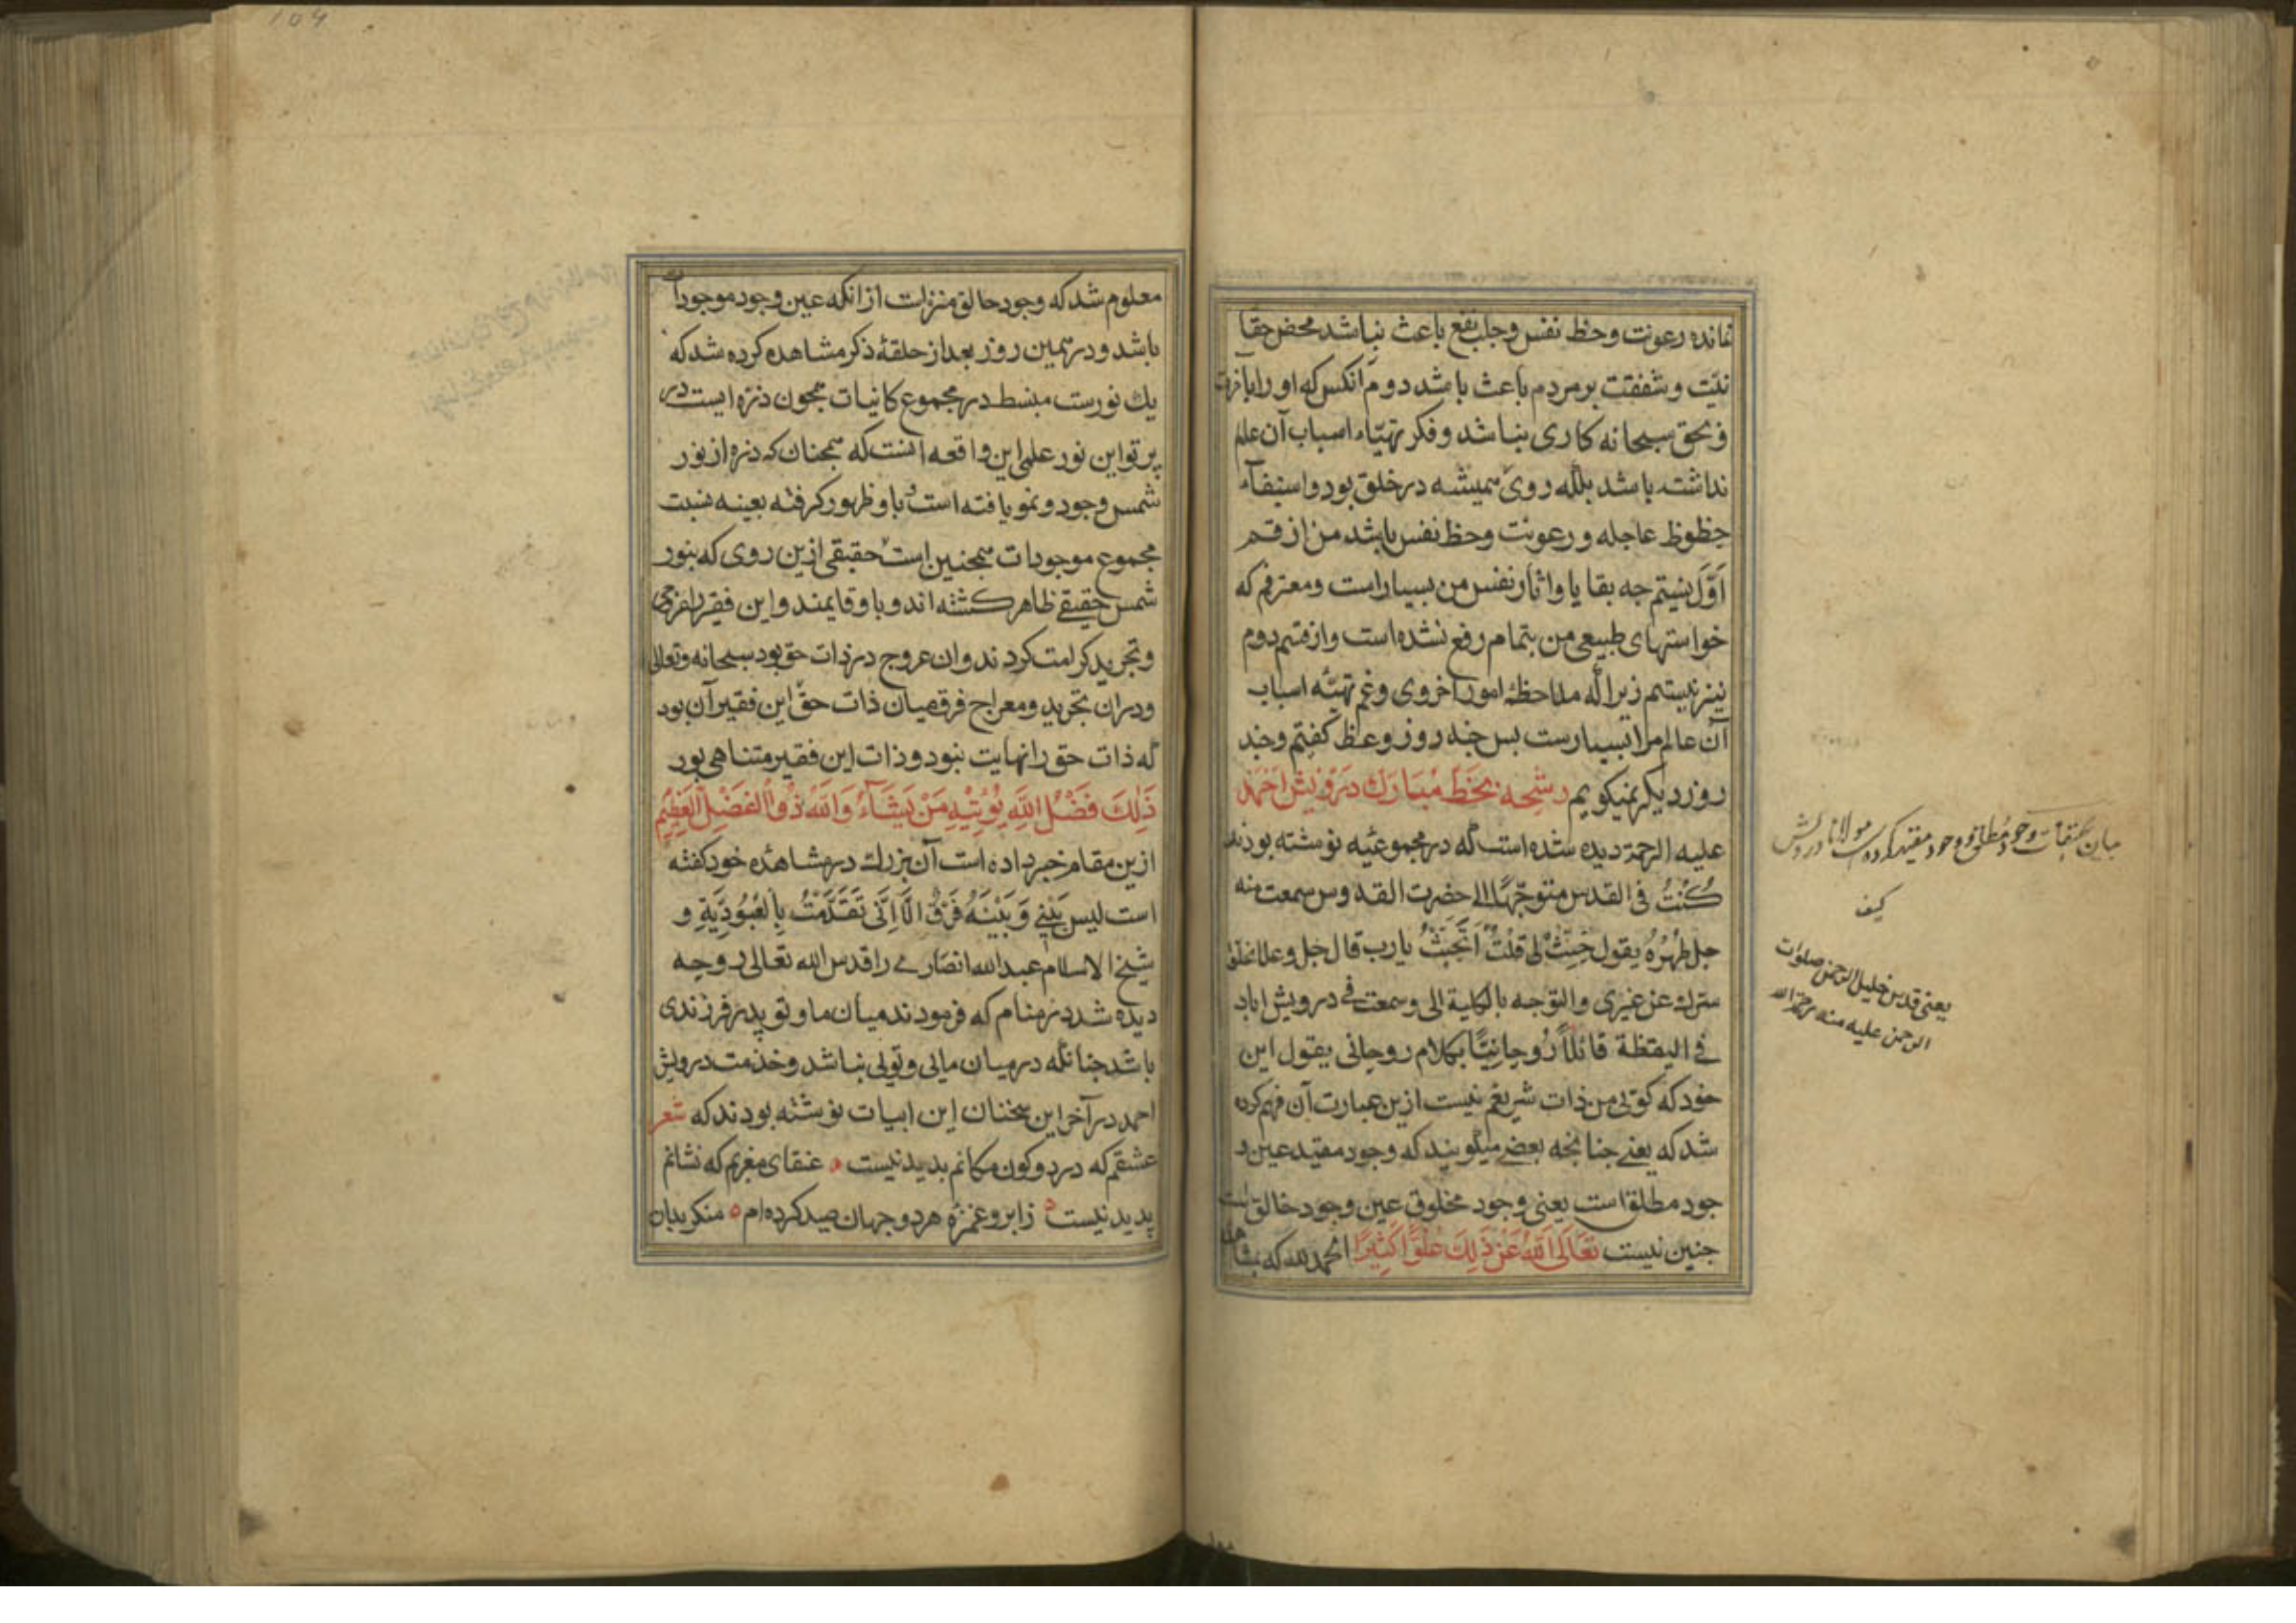 نمانده رعونت و حظ نفس و جلب نفع باعث نباشد محض حقا
نیّت و شفقت بر مردم باعث باشد دوم آنکس که او را با خرت
و بحق سبحانه کاری نباشد و فکر تهیّاء اسباب آن عالم
نداشته باشد بلکه روی همیشه در خلق بود و استیفآء
حظوظ عاجله و رعونت و حظ نفس باشد من از قسم
اوّل نیستم جه بقایا و اثار نفس من بسیار است و معترفم که
خواستهای طبیعی من بتمام رفع نشده است و از قسم دوم
نیز نیستم زیرا که ملاحظهٔ امور اخروی و غم تهیّه اسباب
آن عالم مرا بسیارست بس جند روز وعظ کفتم و جند
روز دیکر نمیکویم رشحه بخط مبارک درویش احمد
علیه الرحمة دیده شده است که در مجموعئه نوشته بودند
کُنْتُ فی القدس متوجّهًا الی حضرت القدوس سمعت منه
جل طهره یقول جئت لی قلت اتجبت یارب قال جل و علا
سترک عن غیری والتوجه بالکلیة الی و سمعت فی درویش اباد
فی الیقظة قائلاً رُوحانیًّا بکلام روحانی یقول این
خود که کوئی من ذات شریفم نیست ازین عبارت آن فهم کرده
شد که یعنی جنانجه بعضی میکویند که وجود مقید عین و
جود مطلق است یعنی وجود مخلوق عین وجود خالق است
جنین نیست تَعَالَی اللهُ عَنْ ذَلِكَ عُلُوًّا كَثِیرًا الحمد لله که
بیان وجود مطلق و وجود مقید کرده مولانا درویش
یعنی قدس خلیل الرحمن صلوات
الرحمن علیه منه رحمه الله
معلوم شد که وجود خالق منزه است از انکه عین وجود موجودات
باشد و در همین روز بعد از حلقهٔ ذکر مشاهده کرده شد که
یك نورست منبسط در مجموع کاینات همجون ذره ایست در
پرتو این نور علم این واقعه آنست که همجنان که ذره از نور
شمس وجود و نمو یافته است و باو ظهور کرفته بعینه نسبت
مجموع موجودات همجنین است حقیقی ازین روی که بنور
شمس حقیقی ظاهر کشته اند و باو قایمند و این فقیر را عروجی
و تجرید کرامت کردند و ان عروج در ذات حق بود سبحانه و تعالی
و در ان تجرید و معراج فرق میان ذات حق و این فقیر آن بود
که ذات حق را نهایت نبود و ذات این فقیر متناهی بود
ذَلِكَ فَضْلُ اللَّهِ یُؤْتِیهِ مَنْ یَشَآءُ وَاللَّهُ ذُوا الْفَضْلِ الْعَظِیمِ
ازین مقام خبر داده است آن بزرك در مشاهدهٔ خود کفته
است لیس بَیْنِی وَ بَیْنَهُ فَرْقٌ الَّا اِنِّی تَقَدَّمْتُ بِالْعُبُودِیَّةِ و
شیخ الاسلام عبدالله انصاری را قدس الله تعالی روحه
دیده شد در منام که فرمودند میان ما و تو پدر فرزندی
باشد جنانکه در میان مائی و توئی نباشد و خدمت درویش
احمد در آخر این سخنان این ابیات نوشته بودند که شعر
عشقم که در دو کون مکانم بدید نیست ٥ عنقای مغربم که نشانم
پدید نیست ٥ زابرو و غمزه هر دو جهان صید کرده ام ٥ منکر بدان